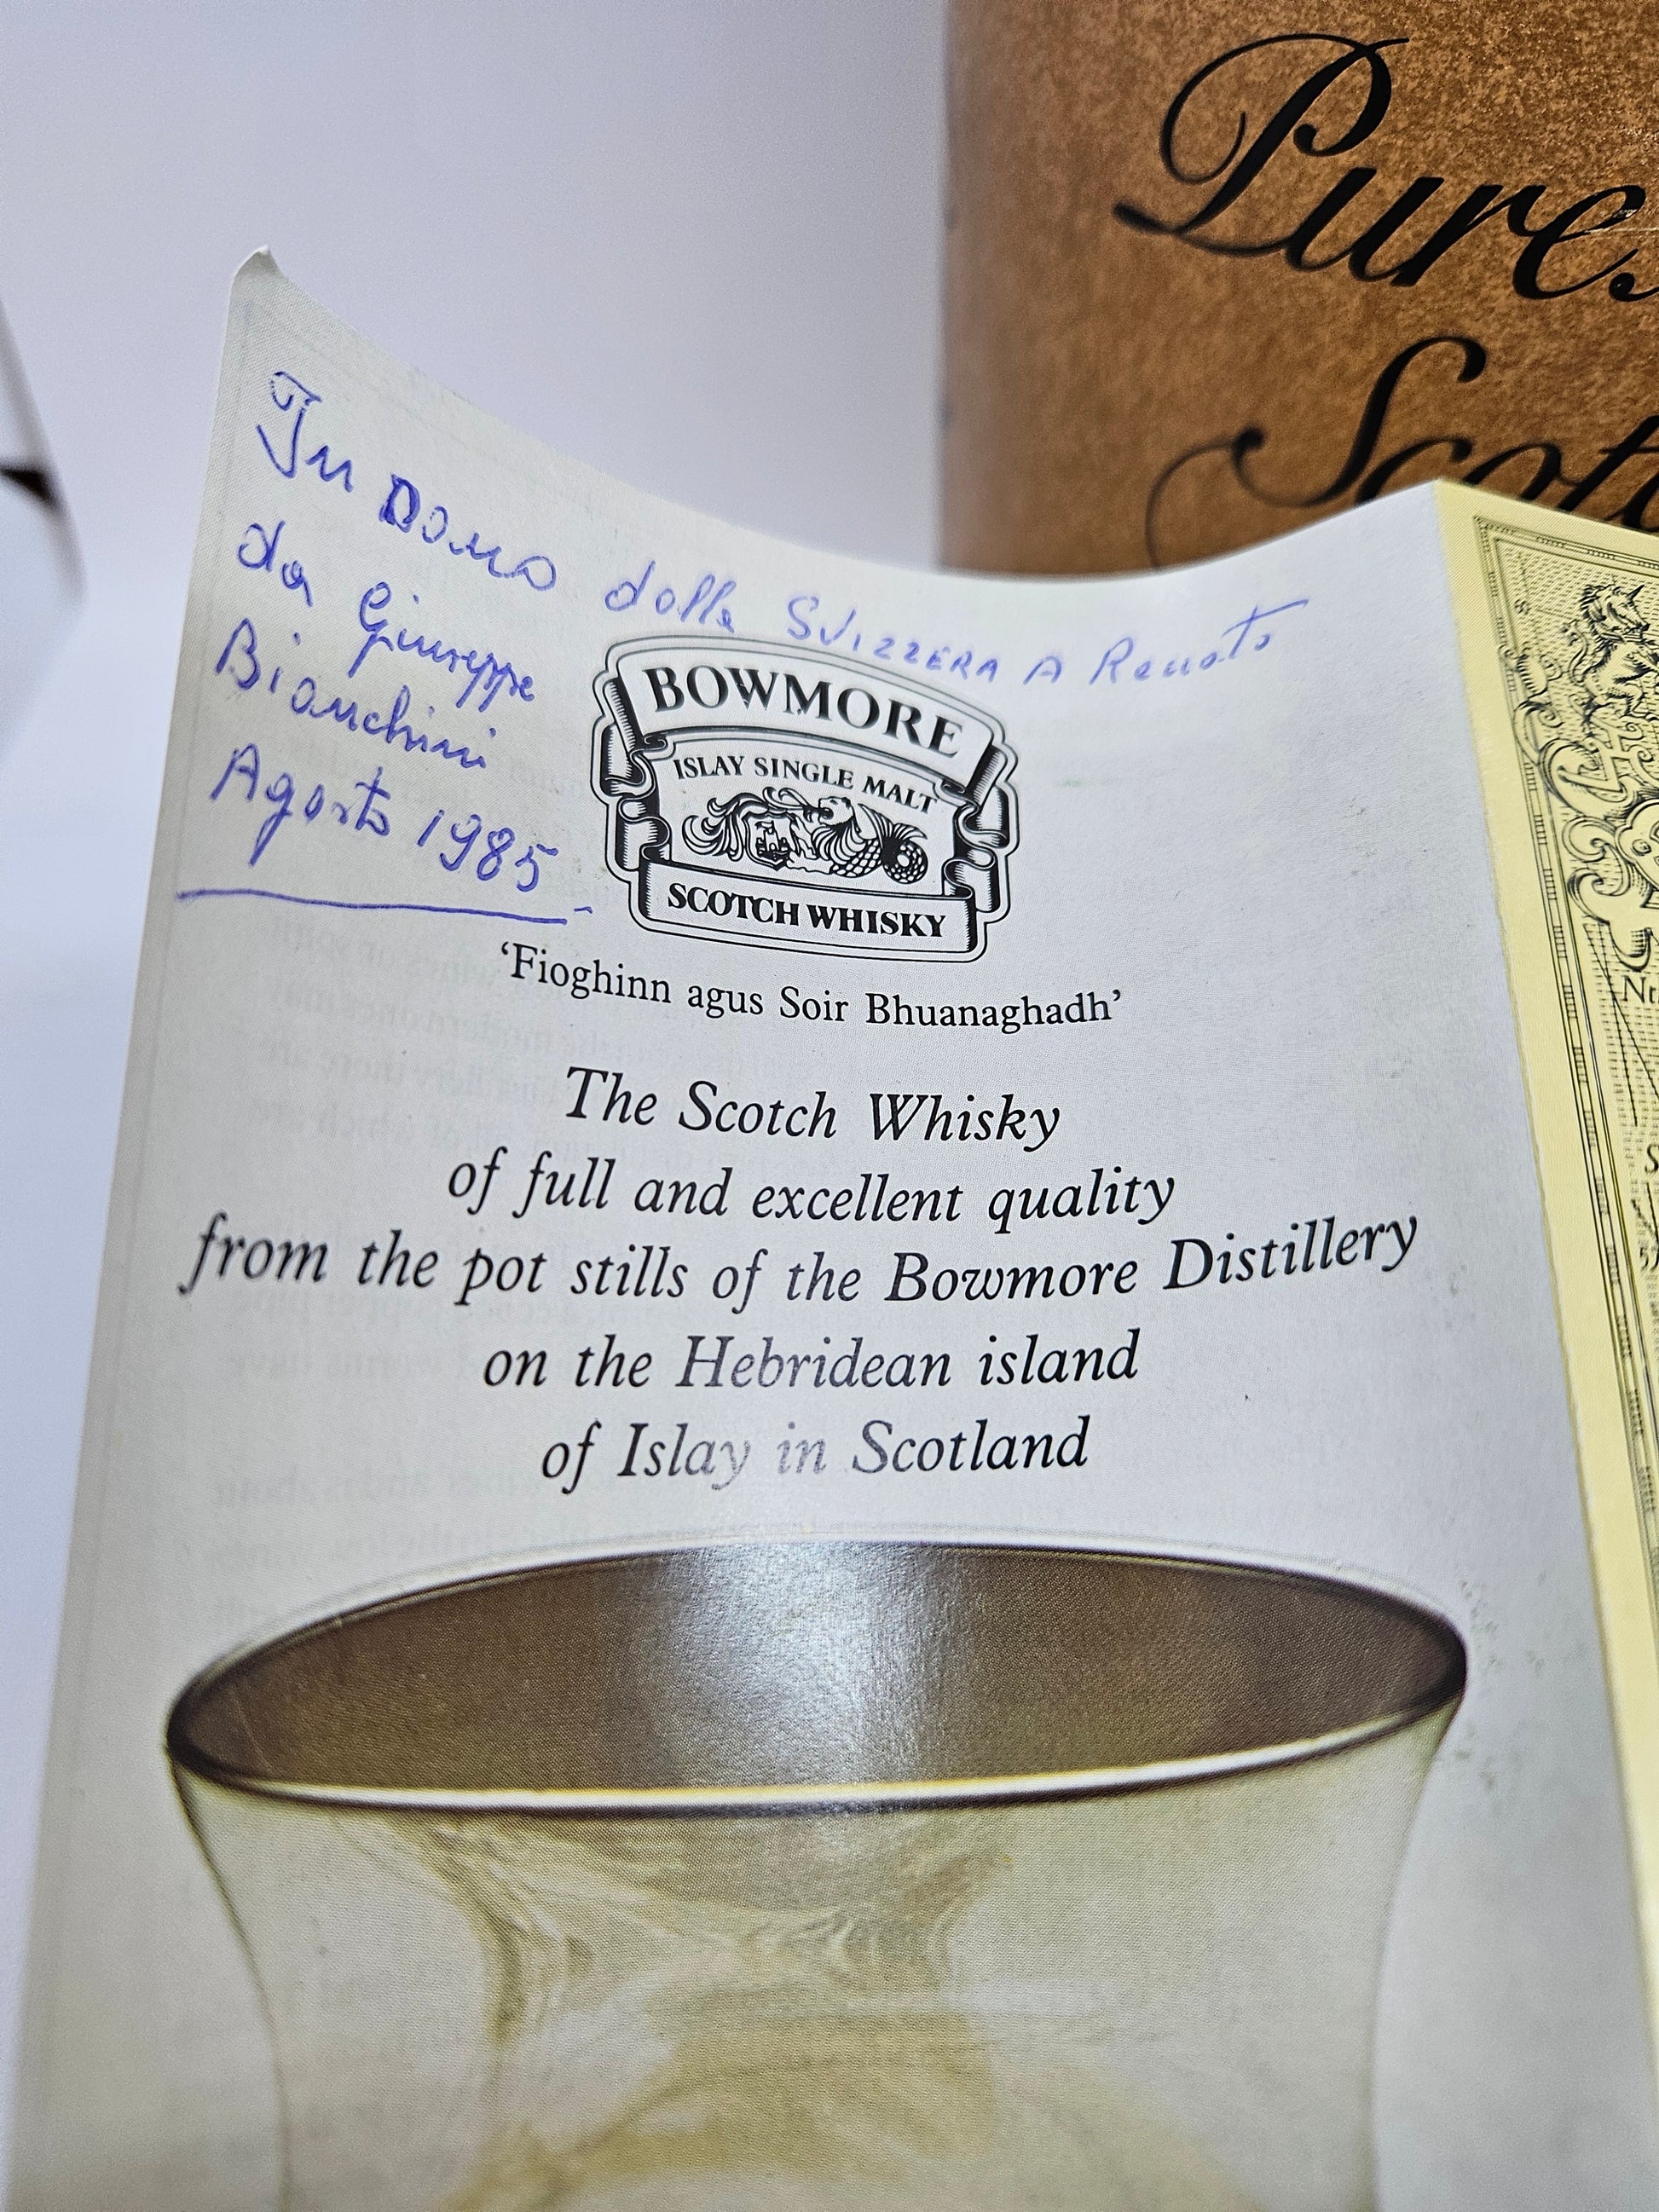 Pure
Scot
In Dono dalla SVIZZERA A Renato
da Giuseppe
Bianchini
Agosto 1985
BOWMORE
ISLAY SINGLE MALT
SCOTCH WHISKY
‘Fioghinn agus Soir Bhuanaghadh’
The Scotch Whisky
of full and excellent quality
from the pot stills of the Bowmore Distillery
on the Hebridean island
of Islay in Scotland